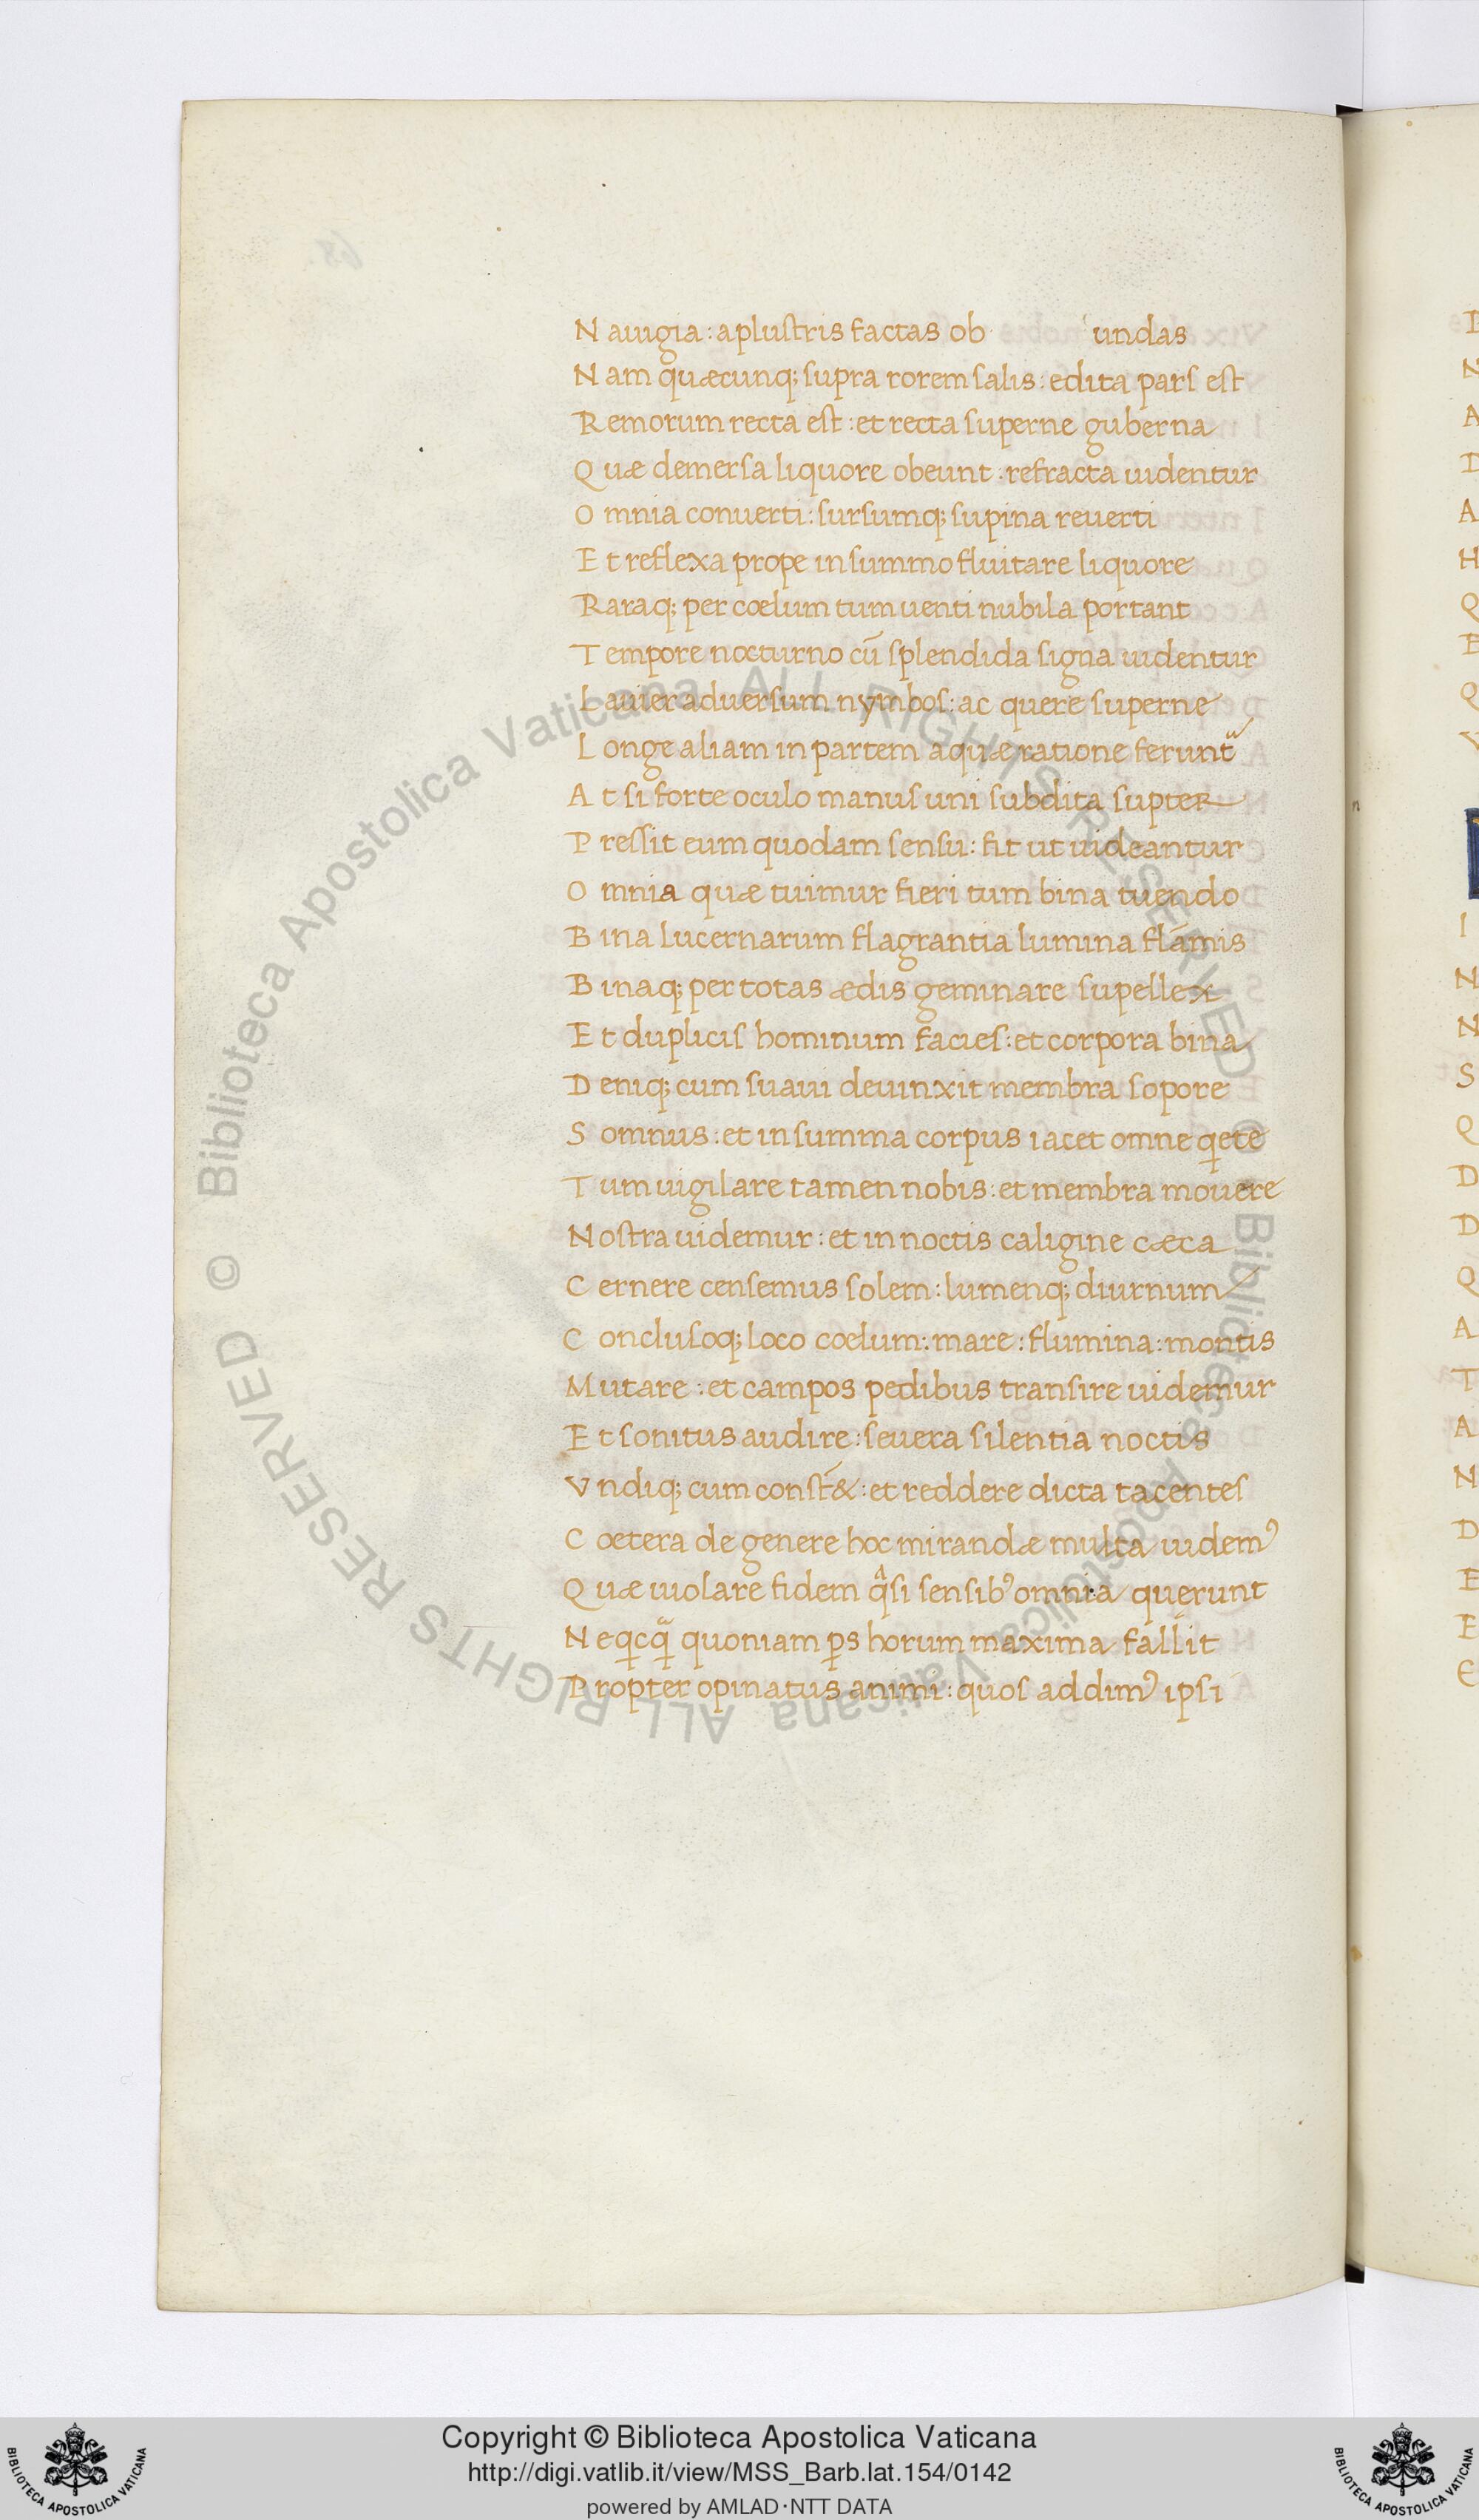 Nauigia : aplustris factas ob undas
Nam quæcunq; supra rorem salis : edita pars est
Remorum recta est : et recta superne guberna
Quæ demersa liquore obeunt : refracta uidentur
Omnia conuerti : sursumq; supina reuerti
Et reflexa prope in summo fluitare liquore
Raraq; per cœlum tum uenti nubila portant
Tempore nocturno cū splendida signa uidentur
Lauier aduersum nymbos : ac quere superne
Longe aliam in partem aquæ ratione ferunt᷑
At si forte oculo manus uni subdita supter
Pressit eum quodam sensu : fit ut uideantur
Omnia quæ tuimur fieri tum bina tuendo
Bina lucernarum flagrantia lumina flāmis
Binaq; per totas ædis geminare supellex
Et duplicis hominum facies : et corpora bina
Deniq; cum suaui deuinxit membra sopore
Somnus : et in summa corpus iacet omne qete
Tum uigilare tamen nobis : et membra mouere
Nostra uidemur : et in noctis caligine cæca
Cernere censemus solem : lumenq; diurnum
Conclusoq; loco cœlum : mare : flumina : montis
Mutare : et campos pedibus transire uidemur
Et sonitus audire : seuera silentia noctis
Vndiq; cum const̄& : et reddere dicta tacentes
Cœtera de genere hoc mirandæ multa uidemꝰ
Quæ uiolare fidem qᵃsi sensibꝰ omnia querunt
Neqcqᵃ quoniam ꝑs horum maxima fallit
Propter opinatus animi : quos addimꝰ ipsi
Copyright © Biblioteca Apostolica Vaticana
http://digi.vatlib.it/view/MSS_Barb.lat.154/0142
powered by AMLAD·NTT DATA